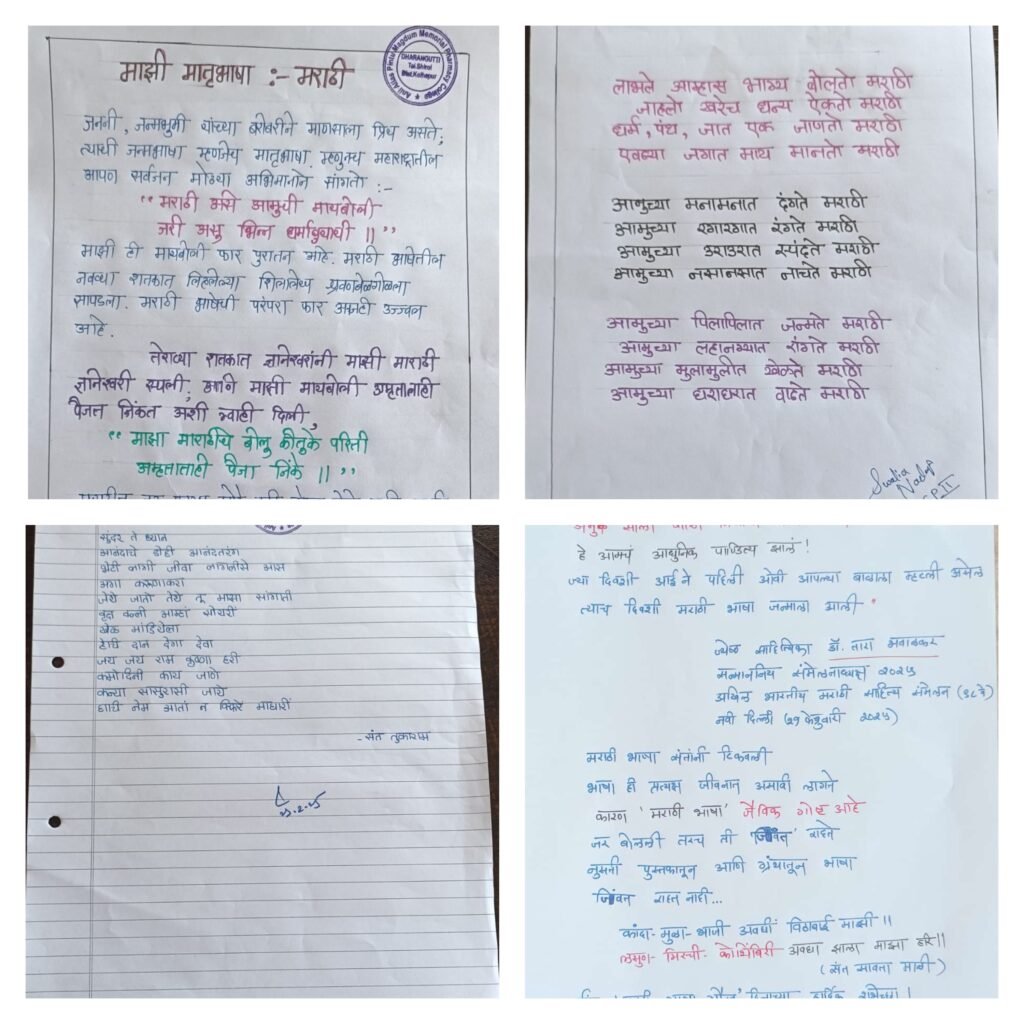 माझी मातृभाषा :- मराठी
Anil Alias Pintu Magdum Memorial Pharmacy College
DHARANGUTTI
Tal.Shirol
Dist.Kolhapur
जननी, जन्मभुमी यांच्या बरोबरीने माणसाला प्रिय असते;
त्याची जन्मभाषा म्हणजेच मातृभाषा. म्हणुनच महाराष्ट्रातील
आपण सर्वजन मोठ्या अभिमानाने सांगतो :-
“ मराठी असे आमुची मायबोली
जरी असु भिन्न धर्मानुयायी ॥”
माझी ही मायबोली फार पुरातन आहे. मराठी भाषेतील
नवव्या शतकात लिहलेल्या शिलालेख श्रवणबेळगोळला
सापडला. मराठी भाषेची परंपरा फार अशी उज्ज्वल
आहे.
तेराव्या शतकात ज्ञानेश्वरांनी माझी मराठी
ज्ञानेश्वरी रचली; आणि माझी मायबोली अमृतालाही
पैजत जिंकत अशी ग्वाही दिली,
“ माझा माराठीचि बोलु कौतुके परिती
अमृतातही पैजा जिंके ॥”
लाभले आम्हास भाग्य बोलतो मराठी
जाहलो खरेच धन्य ऐकतो मराठी
धर्म, पंथ, जात एक जाणतो मराठी
एवढ्या जगात माय मानतो मराठी
आमुच्या मनामनात दंगते मराठी
आमुच्या रगारगात रंगते मराठी
आमुच्या उराउरात स्पंदते मराठी
आमुच्या नसानसात नाचते मराठी
आमुच्या पिलापिलात जन्मते मराठी
आमुच्या लहानग्यात रांगते मराठी
आमुच्या मुलामुलीत खेळते मराठी
आमुच्या घराघरात वाढते मराठी
सुंदर ते ध्यान
आनंदाचे डोही आनंदतरंग
भेटी लागी जीवा लागलीसे आस
अगा करुणाकरा
जेथे जातो तेथे तू माझा सांगाती
वृक्ष वल्ली आम्हां सोयरीं
खेळ मांडियेला
हेचि दान देगा देवा
जय जय राम कृष्ण हरी
कमोदिनी काय जाणे
कन्या सासुरासी जाये
हाचि नेम आतां न फिरे माघारीं
-संत तुकाराम
हे आमचं आधुनिक पांडित्य झालं!
ज्या दिवशी आई ने पहिली ओवी आपल्या बाळाला म्हटली असेल
त्याच दिवशी मराठी भाषा जन्माला आली.
ज्येष्ठ साहित्यिका डॉ. तारा भवाळकर
सन्माननिय संमेलनाध्यक्ष २०२५
अखिल भारतीय मराठी साहित्य संमेलन (९८ वे)
नवी दिल्ली (२१ फेब्रुवारी २०२५)
मराठी भाषा संतांनी टिकवली
भाषा ही प्रत्यक्ष जीवनात असावी लागते
कारण 'मराठी भाषा' जैविक गोष्ट आहे
जर बोलली तरच ती 'जिवंत' राहते
नुसती पुस्तकातून आणि ग्रंथातून भाषा
जिवंत राहत नाही...
कांदा-मुळा-भाजी अवघीं विठाबाई माझी ॥
लसुण-मिरची-कोथिंबिरी अवघा झाला माझा हरि॥
(संत सावता माळी)